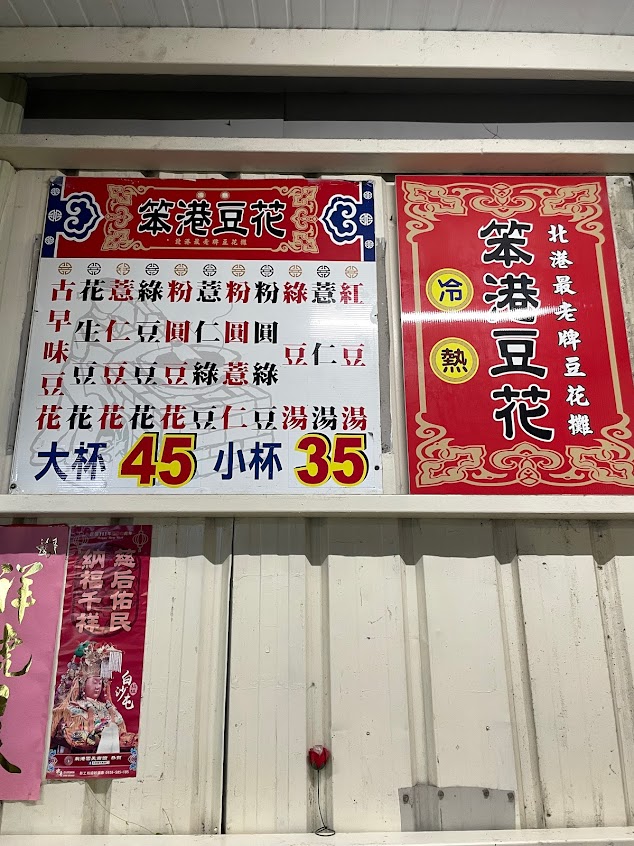 笨港豆花
北港最老牌豆花攤
古早味豆花
花生豆花
薏仁豆花
綠豆豆花
粉圓豆花
薏仁綠豆
粉圓薏仁
粉圓綠豆
綠豆湯
薏仁湯
紅豆湯
大杯 45 小杯 35
北港最老牌豆花攤
笨港豆花
冷
熱
慈后佑民
千祥
白沙屯
祥虎